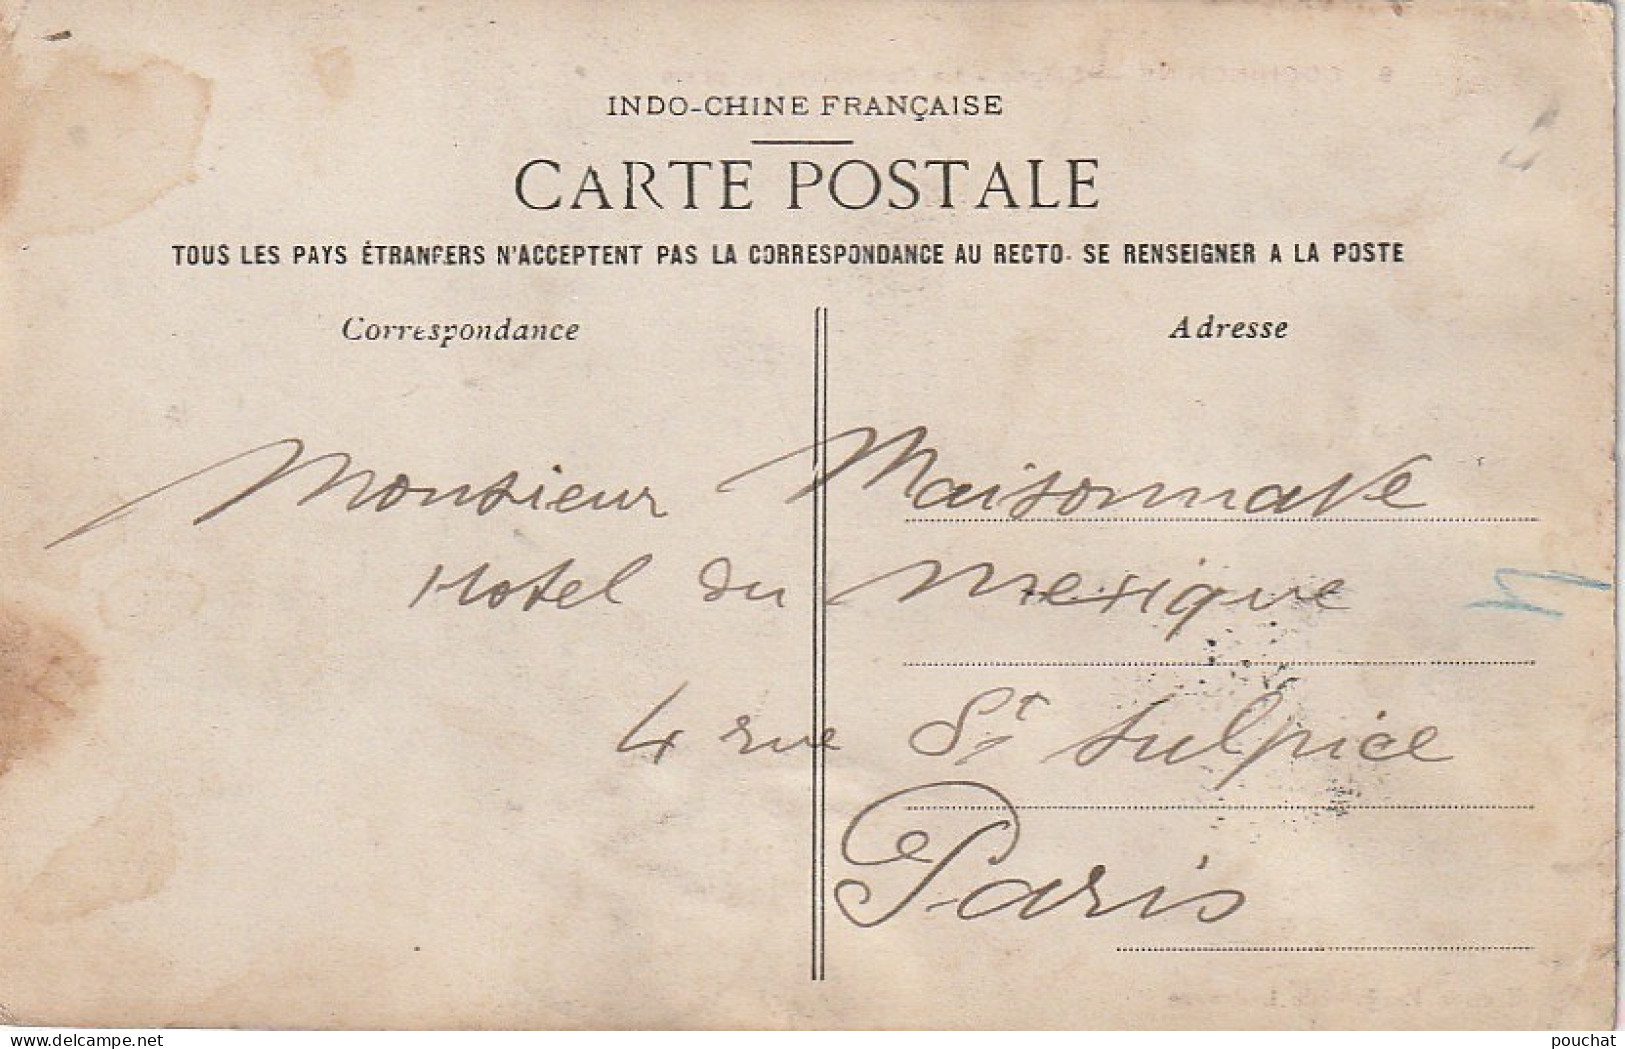 INDO-CHINE FRANÇAISE
CARTE POSTALE
TOUS LES PAYS ÉTRANGERS N'ACCEPTENT PAS LA CORRESPONDANCE AU RECTO- SE RENSEIGNER A LA POSTE
Correspondance
Adresse
Monsieur Maisonnave
Hotel du Mexique
4 rue St Sulpice
Paris
www.delcampe.net
pouchat